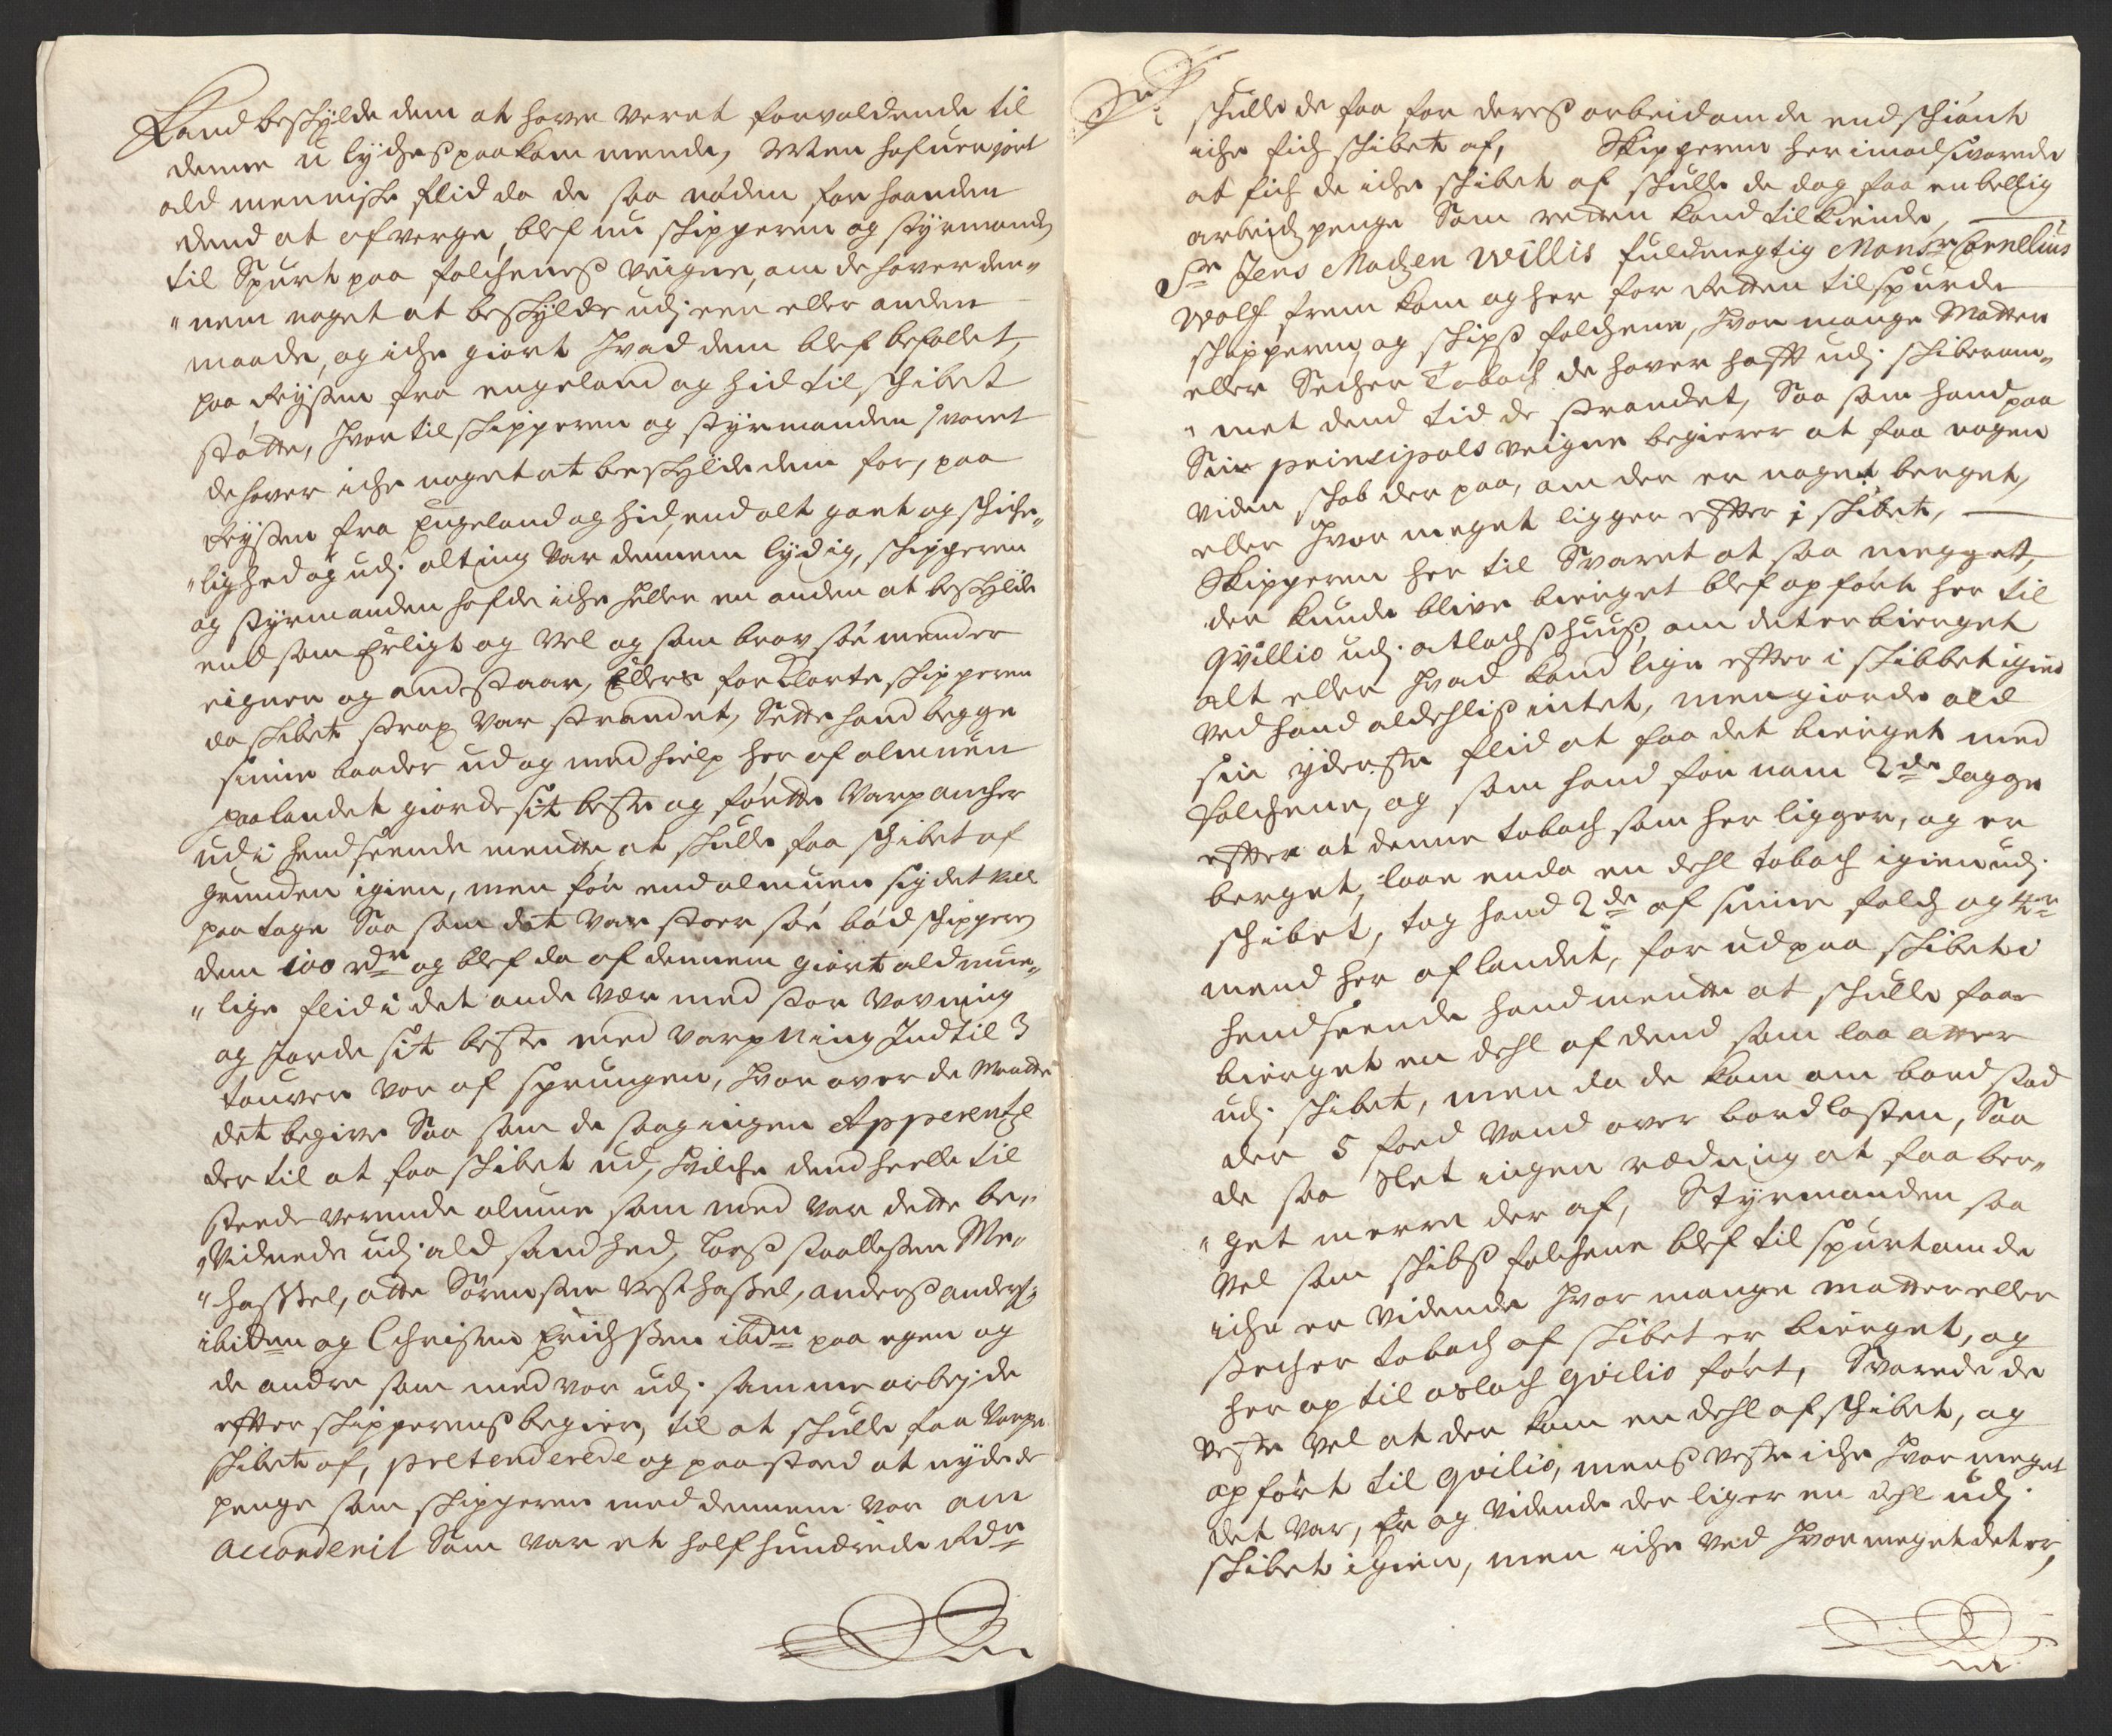 Kand beskylde dem at hawe veret forvoldende til
denne ulychis paakommende, Men hafuer giort
ald menniske flid da de saa nøden for haanden
dend at afverge, blef nu skipperen og styrmand
til Spurt paa folchenes veigne, om de hawer den„
„nem noget at beskylde udj een eller anden
maade, og iche giort hvad dem blef befallet,
paa Reysen fra engeland og hid til skibet
støtte, hvor til skipperen og styrmanden svaret
de hawer iche noget at beskylde dem for, paa
Reysen fra Engeland og hid, end alt got og skiche„
„lighed og udj alting var dennem lydig, skipperen
og styrmanden hafde iche heller en anden at beskylde
end som Erligt og vel og som brav søe mender
eigner og anstaar, Ellers forklarte skipperen
da skibet strax var strandet, Sette hand begge
sinne baader ud og med hielp her af almuen
paa landet giorde sit beste og førtte varp ancher
ud i hendseende mentte at skulle faa skibet af
grunden igien, men før end almuen sig det vil
paa tage Saa som det var stoer søe bød skipperen
dem 100 rdr og blef da af dennem giort ald mue„
„lige flid i det onde veer med stor vovning
og giorde sit beste med varpning Indtil 3
touver var af sprungen, hvor over de maatte
det begive Saa som de saag ingen Apperentze
der til at faa skibet ud, hvilche dend heelle til
steede verende almue som med var dette be„
„vidnede udj ald sandhed, Lars Staallesen Me„
„hassel, otte Sørensen vesthassel, anders anders:
ibidem og Christen Erichsen ibdm paa egen og
de andre som med var udj samme arbejde
efter skipperens begier, til at skulle faa varpe
skibet af, pretenderede og paastoed at nyde de
penge som skipperen med dennem var om
accorderit Som var et half hundrede Rdr
skulle de faa for deres arbeid om de end skiønt
iche fich skibet af, Skipperen her imod svarede
at fich de iche skibet af skulle de dog faa en bellig
arbeids penge Som retten kand tilkiende,
Sr Jens Madzen Willis fuldmegtig Monsr Cornellius
Wolf frem kom og her for Retten tilspurde
skipperen og skips folchene, hvor mange Matter
eller Secher Tobach de hawer hafft udj skiberum„
„met dend tid de strandet, Saa som hand paa
Sin principals veigne begierer at faa nogen
viden skab der paa, om der er noget berget,
eller hvor meget ligger effter i skibet,
Skipperen her til Svaret at saa megget,
der kunde blive bierget blef op ført her til
Qvillio udj atlachs huus, om det er bierget
alt eller hvad kand lige effter i skibbet igien
ved hand aldehlis intet, men giorde ald
sin yderste flid at faa det bierget med
folchene, og som hand for nam 2de dagge
effter at denne tobach som her ligger, og er
berget, laae enda en dehl tobach igien udj
skibet, tog hand 2de af sinne folch og 4re
mend her af landet, for ud paa skibet i
hendseende hand mentte at skulle faae
bierget en dehl af dend som laa atter
udj skibet, men da de kom om bord stod
der 5 foed vand over bord lasten, Saa
de saa slet ingen redning at faa ber„
„get merre der af, Styrmanden saa
vel som skibs folchene blef til spurt om de
iche er vidende hvor mange matter eller
secher tobach af skibet er bierget, og
her op til aslach Qvilio ført, Svarede de
veste vel at der kom en dehl af skibet, og
op ført til Qvilio, mens veste iche hvor meget
det var, Er og vidende der liger en dehl udj
skibet igien, men iche ved hvor meget det er,